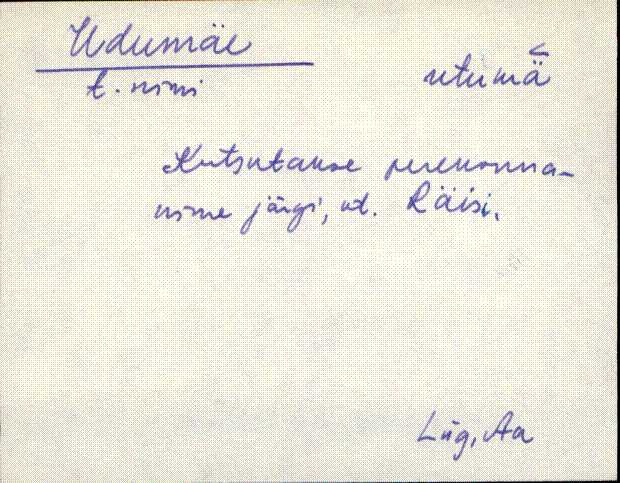 Udumäe
t. nimi
utumä̆
Kutsutakse perekonna-
nime järgi, vt. Räisi.
Lüg, Aa